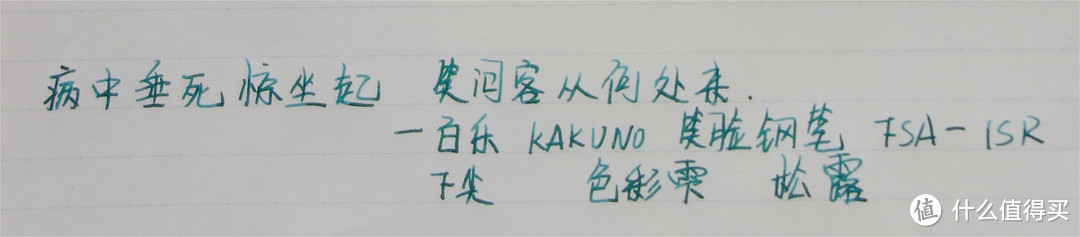 病中垂死惊坐起 笑问客从何处来.
一百乐 KAKUNO 笑脸钢笔 FSA-1SR
F尖 色彩雫 松露
值 什么值得买